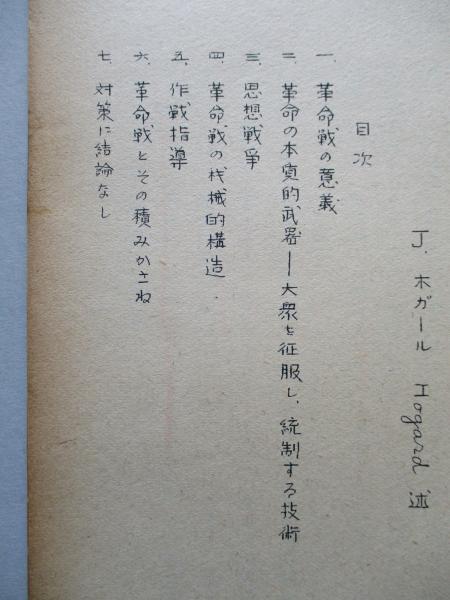 J. ホガール Iogard 述
目次
一. 革命戦の意義
二. 革命の本質的武器―大衆を征服し、統制する技術
三. 思想戦争
四. 革命戦の機械的構造.
五. 作戦指導
六. 革命戦とその積みかさね
七. 対策に結論なし